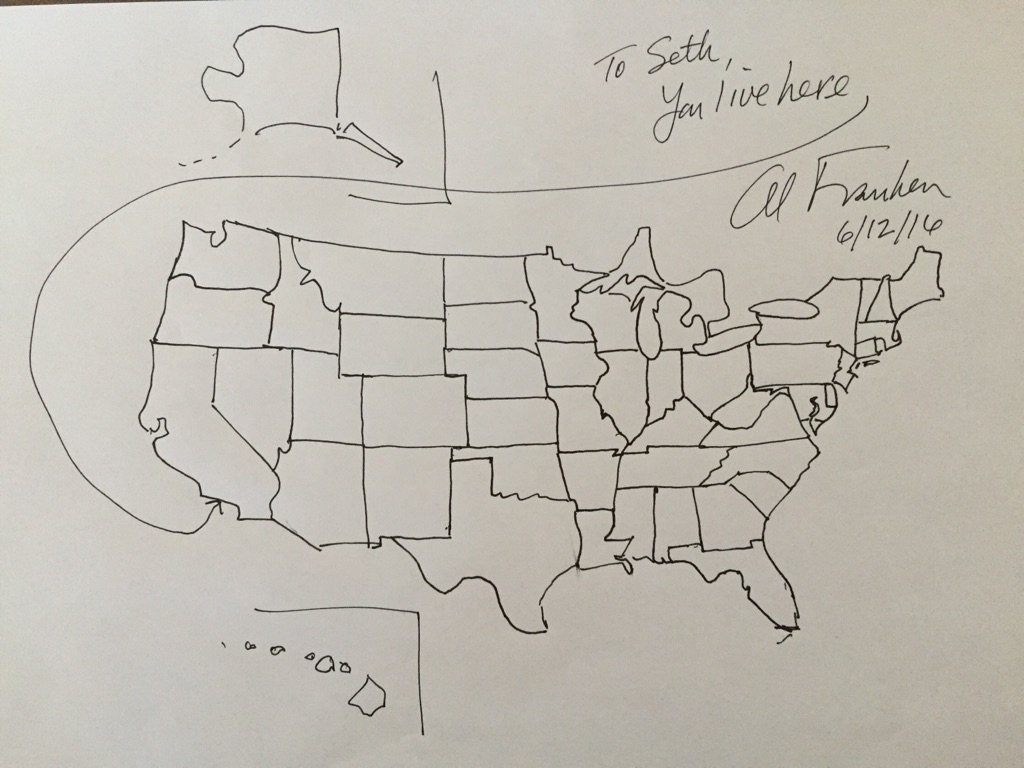 To Seth,
You live here
Al Franken
6/12/16